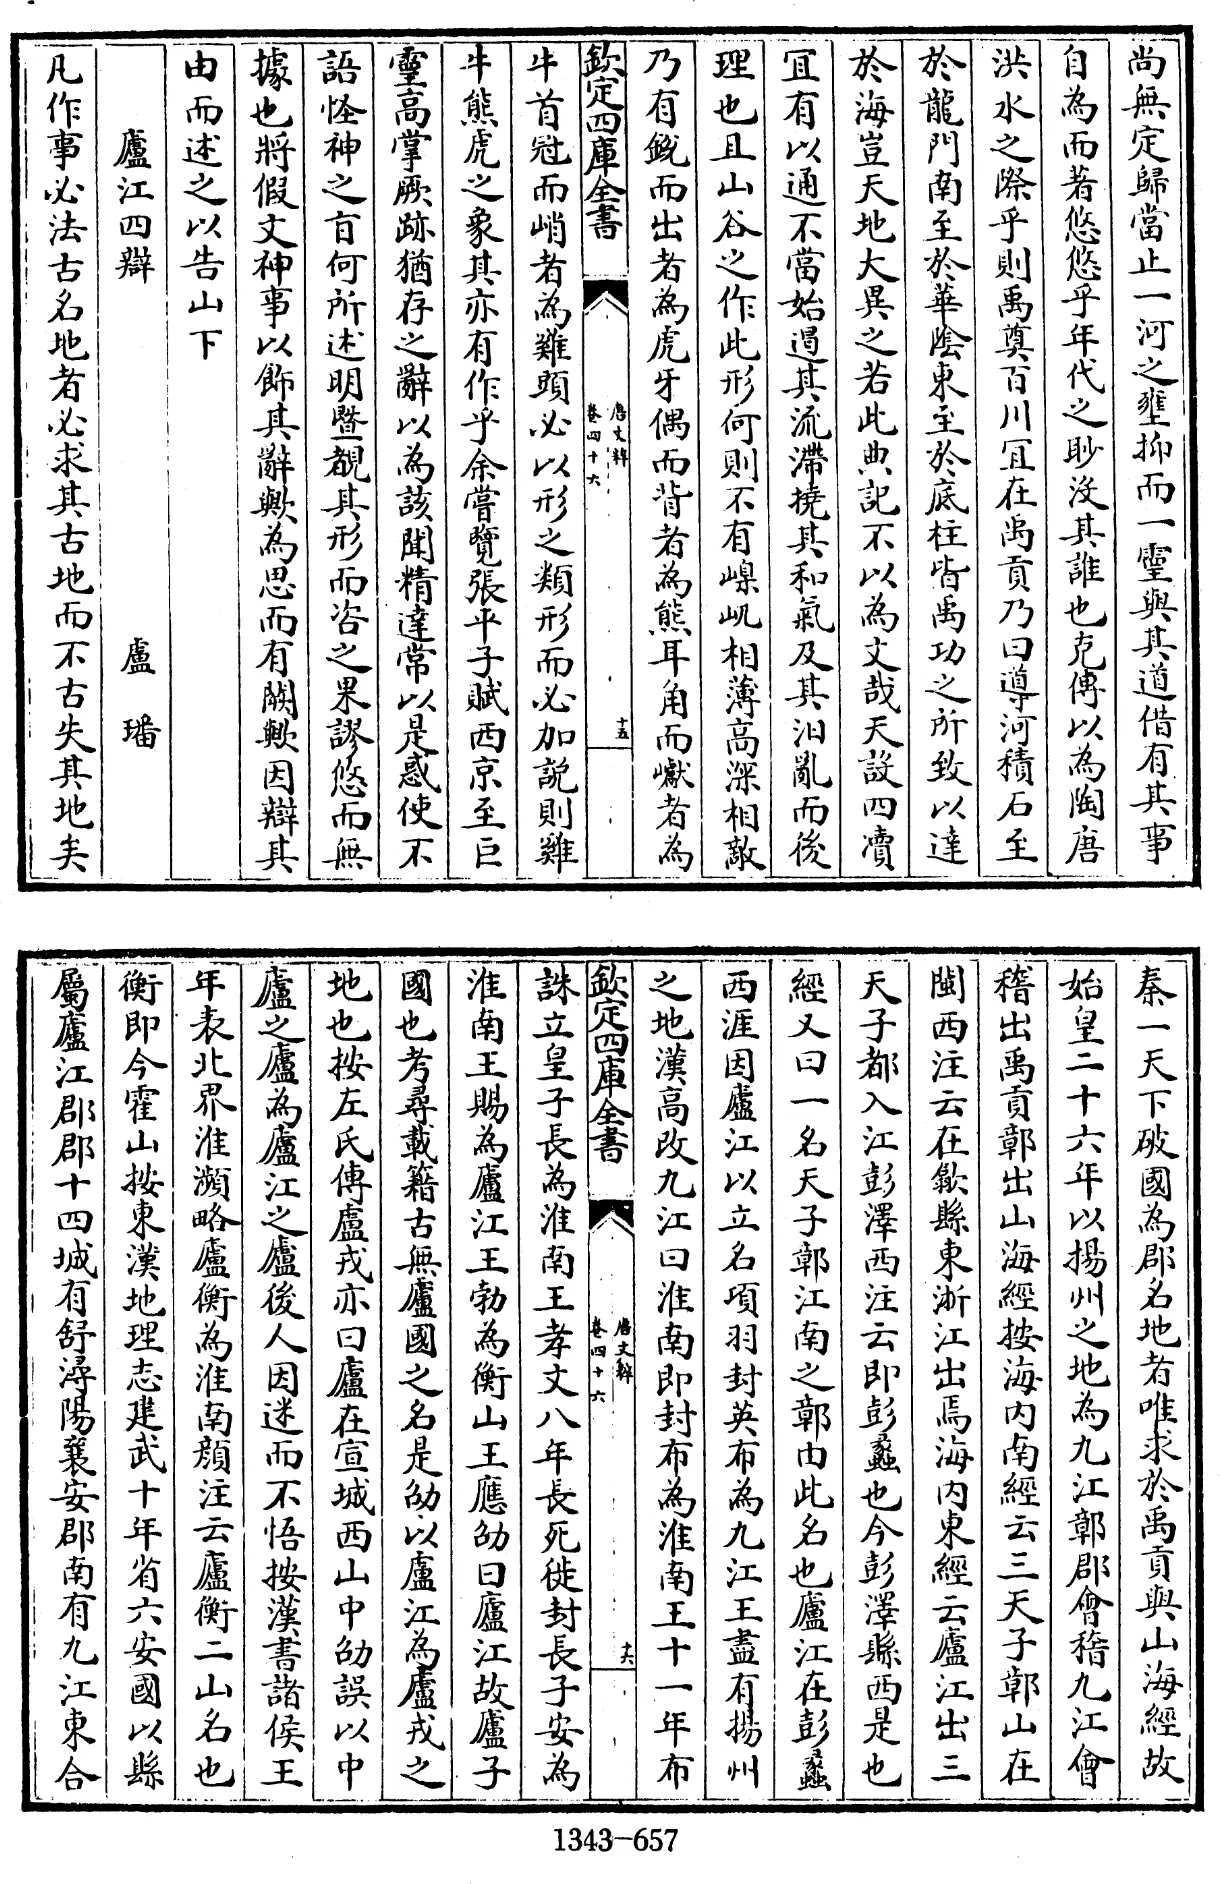 尚無定歸當止一河之壅抑而一靈與其道借有其事
自為而著悠悠乎年代之眇沒其誰也克傳以為陶唐
洪水之際乎則禹奠百川冝在禹貢乃曰導河積石至
於龍門南至於華隂東至於底柱皆禹功之所致以達
於海豈天地大異之若此典記不以為文哉天設四瀆
冝有以通不當始遏其流滯撓其和氣及其汩亂而後
理也且山谷之作此形何則不有嵲屼相薄高深相敵
乃有銳而出者為虎牙偶而背者為熊耳角而巘者為
欽定四庫全書
唐文粹
卷四十六
十五
牛首冠而峭者為雞頭必以形之類形而必加說則雞
牛熊虎之象其亦有作乎余嘗覽張平子賦西京至巨
靈高掌厥跡猶存之辭以為該聞精達常以是惑使不
語怪神之旨何所述明暨覩其形而咨之果謬悠而無
據也將假文神事以飾其辭歟為思而有闕歟因辯其
由而述之以告山下
廬江四辯
盧璠
凡作事必法古名地者必求其古地而不古失其地矣
秦一天下破國為郡名地者唯求於禹貢與山海經故
始皇二十六年以揚州之地為九江鄣郡會稽九江會
稽出禹貢鄣出山海經按海内南經云三天子鄣山在
閩西注云在歙縣東浙江出焉海内東經云廬江出三
天子都入江彭澤西注云即彭蠡也今彭澤縣西是也
經又曰一名天子鄣江南之鄣由此名也廬江在彭蠡
西涯因廬江以立名項羽封英布為九江王盡有揚州
之地漢高改九江曰淮南即封布為淮南王十一年布
欽定四庫全書
唐文粹
卷四十六
十六
誅立皇子長為淮南王孝文八年長死徙封長子安為
淮南王賜為廬江王勃為衡山王應劭曰廬江故廬子
國也考尋載籍古無廬國之名是劭以廬江為廬戎之
地也按左氏傳盧戎亦曰廬在宣城西山中劭誤以中
廬之廬為廬江之廬後人因迷而不悟按漢書諸侯王
年表北界淮瀕略廬衡為淮南顔注云廬衡二山名也
衡即今霍山按東漢地理志建武十年省六安國以縣
屬廬江郡郡十四城有舒潯陽襄安郡南有九江東合
1343-657